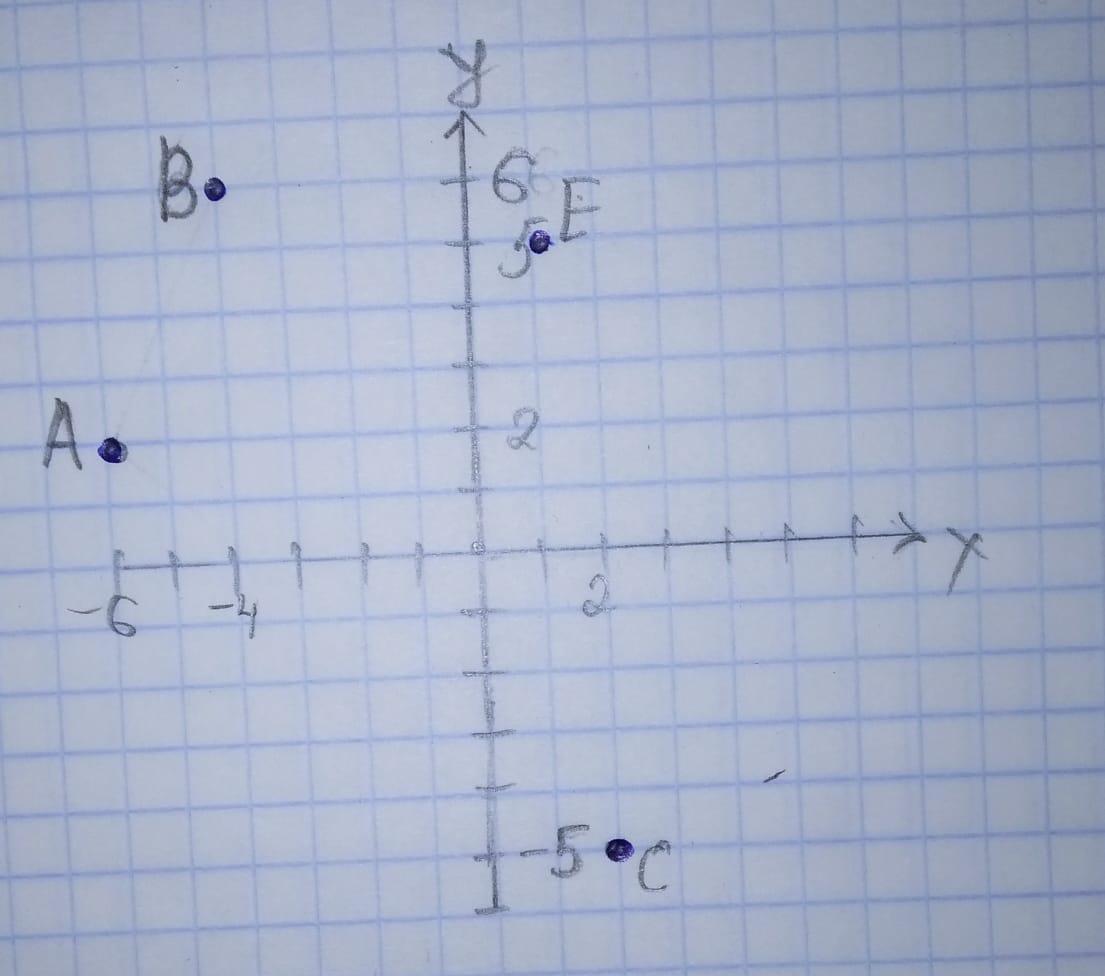 y
B
6
5 E
A
2
x
-6 -4 2
-5 C